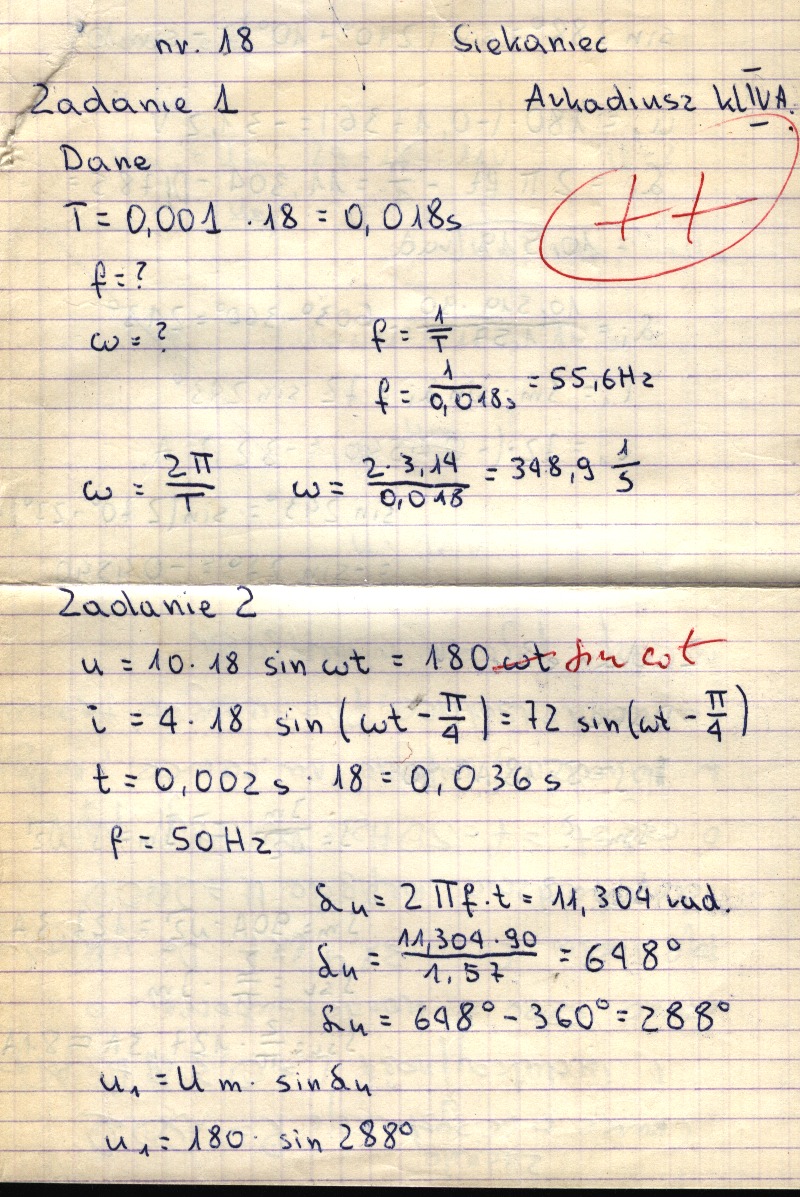 nr. 18 Siekaniec
Zadanie 1 Arkadiusz kl IVA.
Dane
T = 0,001 · 18 = 0,018s
++
f = ?
ω = ? f = 1/T
f = 1/0,018s = 55,6Hz
ω = 2π/T ω = 2·3,14/0,018 = 348,9 1/s
Zadanie 2
u = 10·18 sin ωt = 180 ωt sin ωt
i = 4·18 sin(ωt - π/4) = 72 sin(ωt - π/4)
t = 0,002s · 18 = 0,036s
f = 50Hz
αu = 2πf·t = 11,304 rad.
αu = 11,304·90/1,57 = 648°
αu = 648° - 360° = 288°
u₁ = Um · sin αu
u₁ = 180 · sin 288°